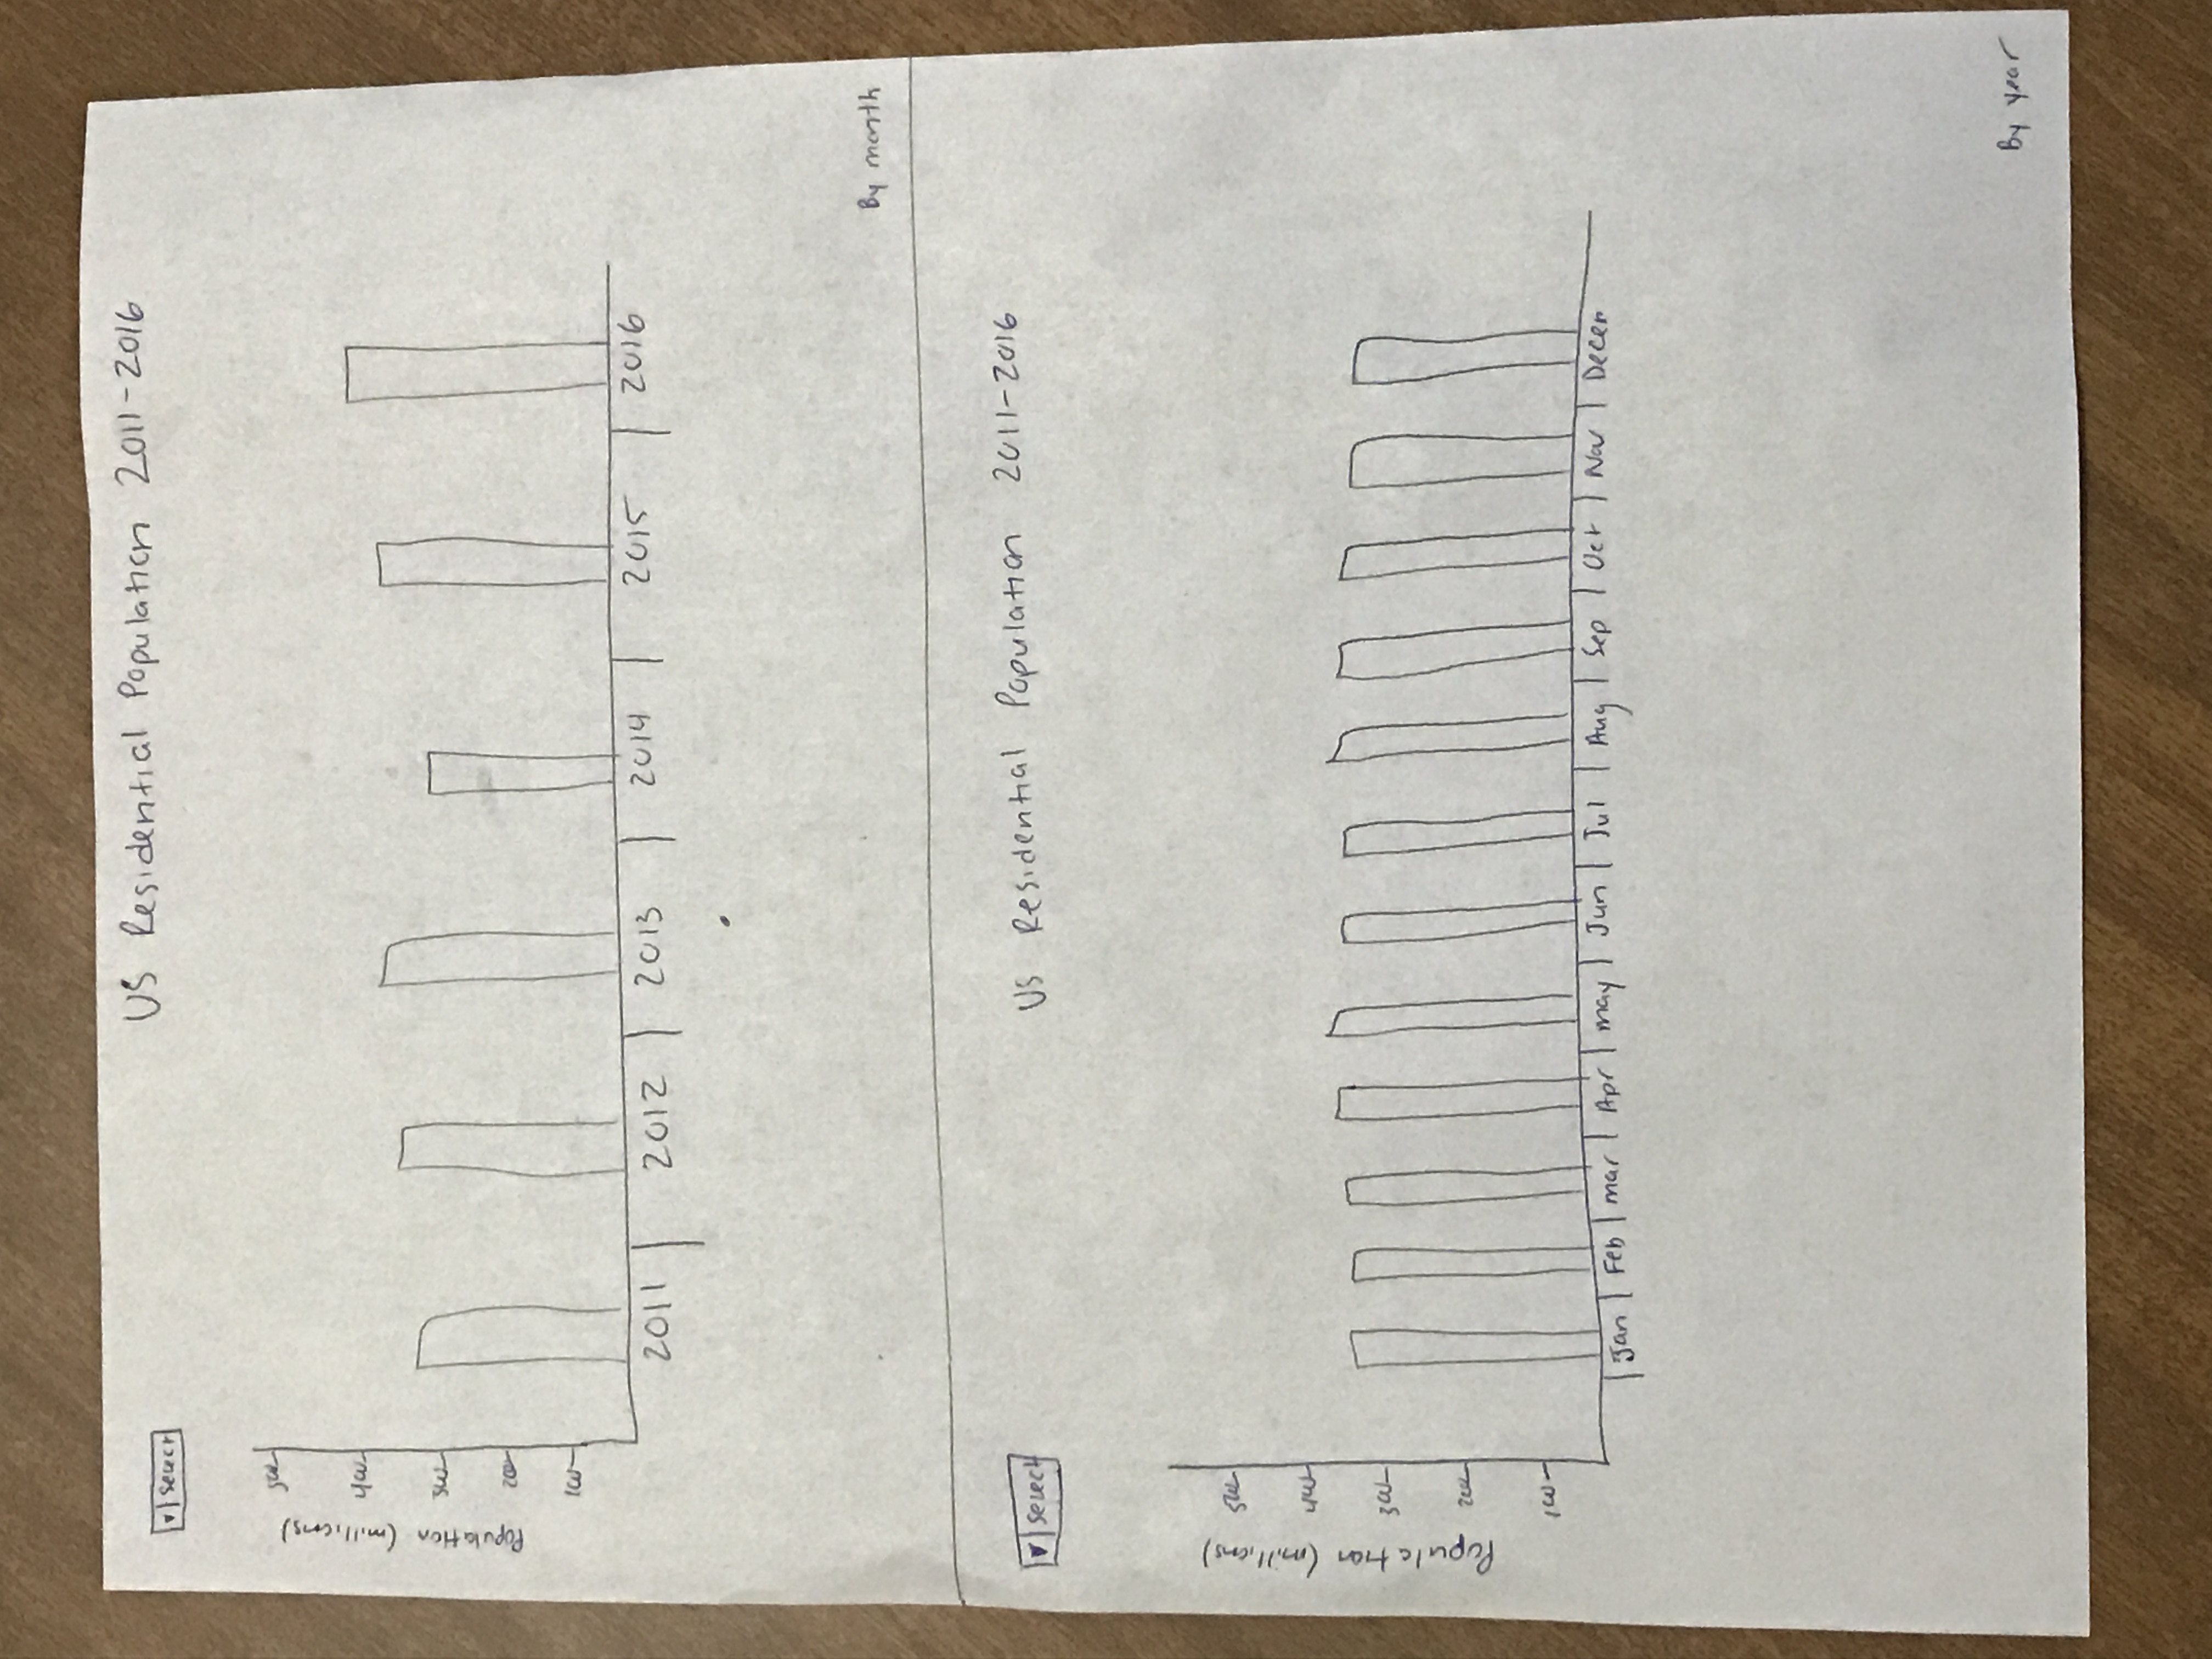 US Residential Population 2011-2016
▾ Select
Population (millions)
500
400
300
200
100
2011 2012 2013 2014 2015 2016
By month
US Residential Population 2011-2016
▾ Select
Population (millions)
500
400
300
200
100
Jan Feb mar Apr may Jun Jul Aug Sep Oct Nov Decem
By year